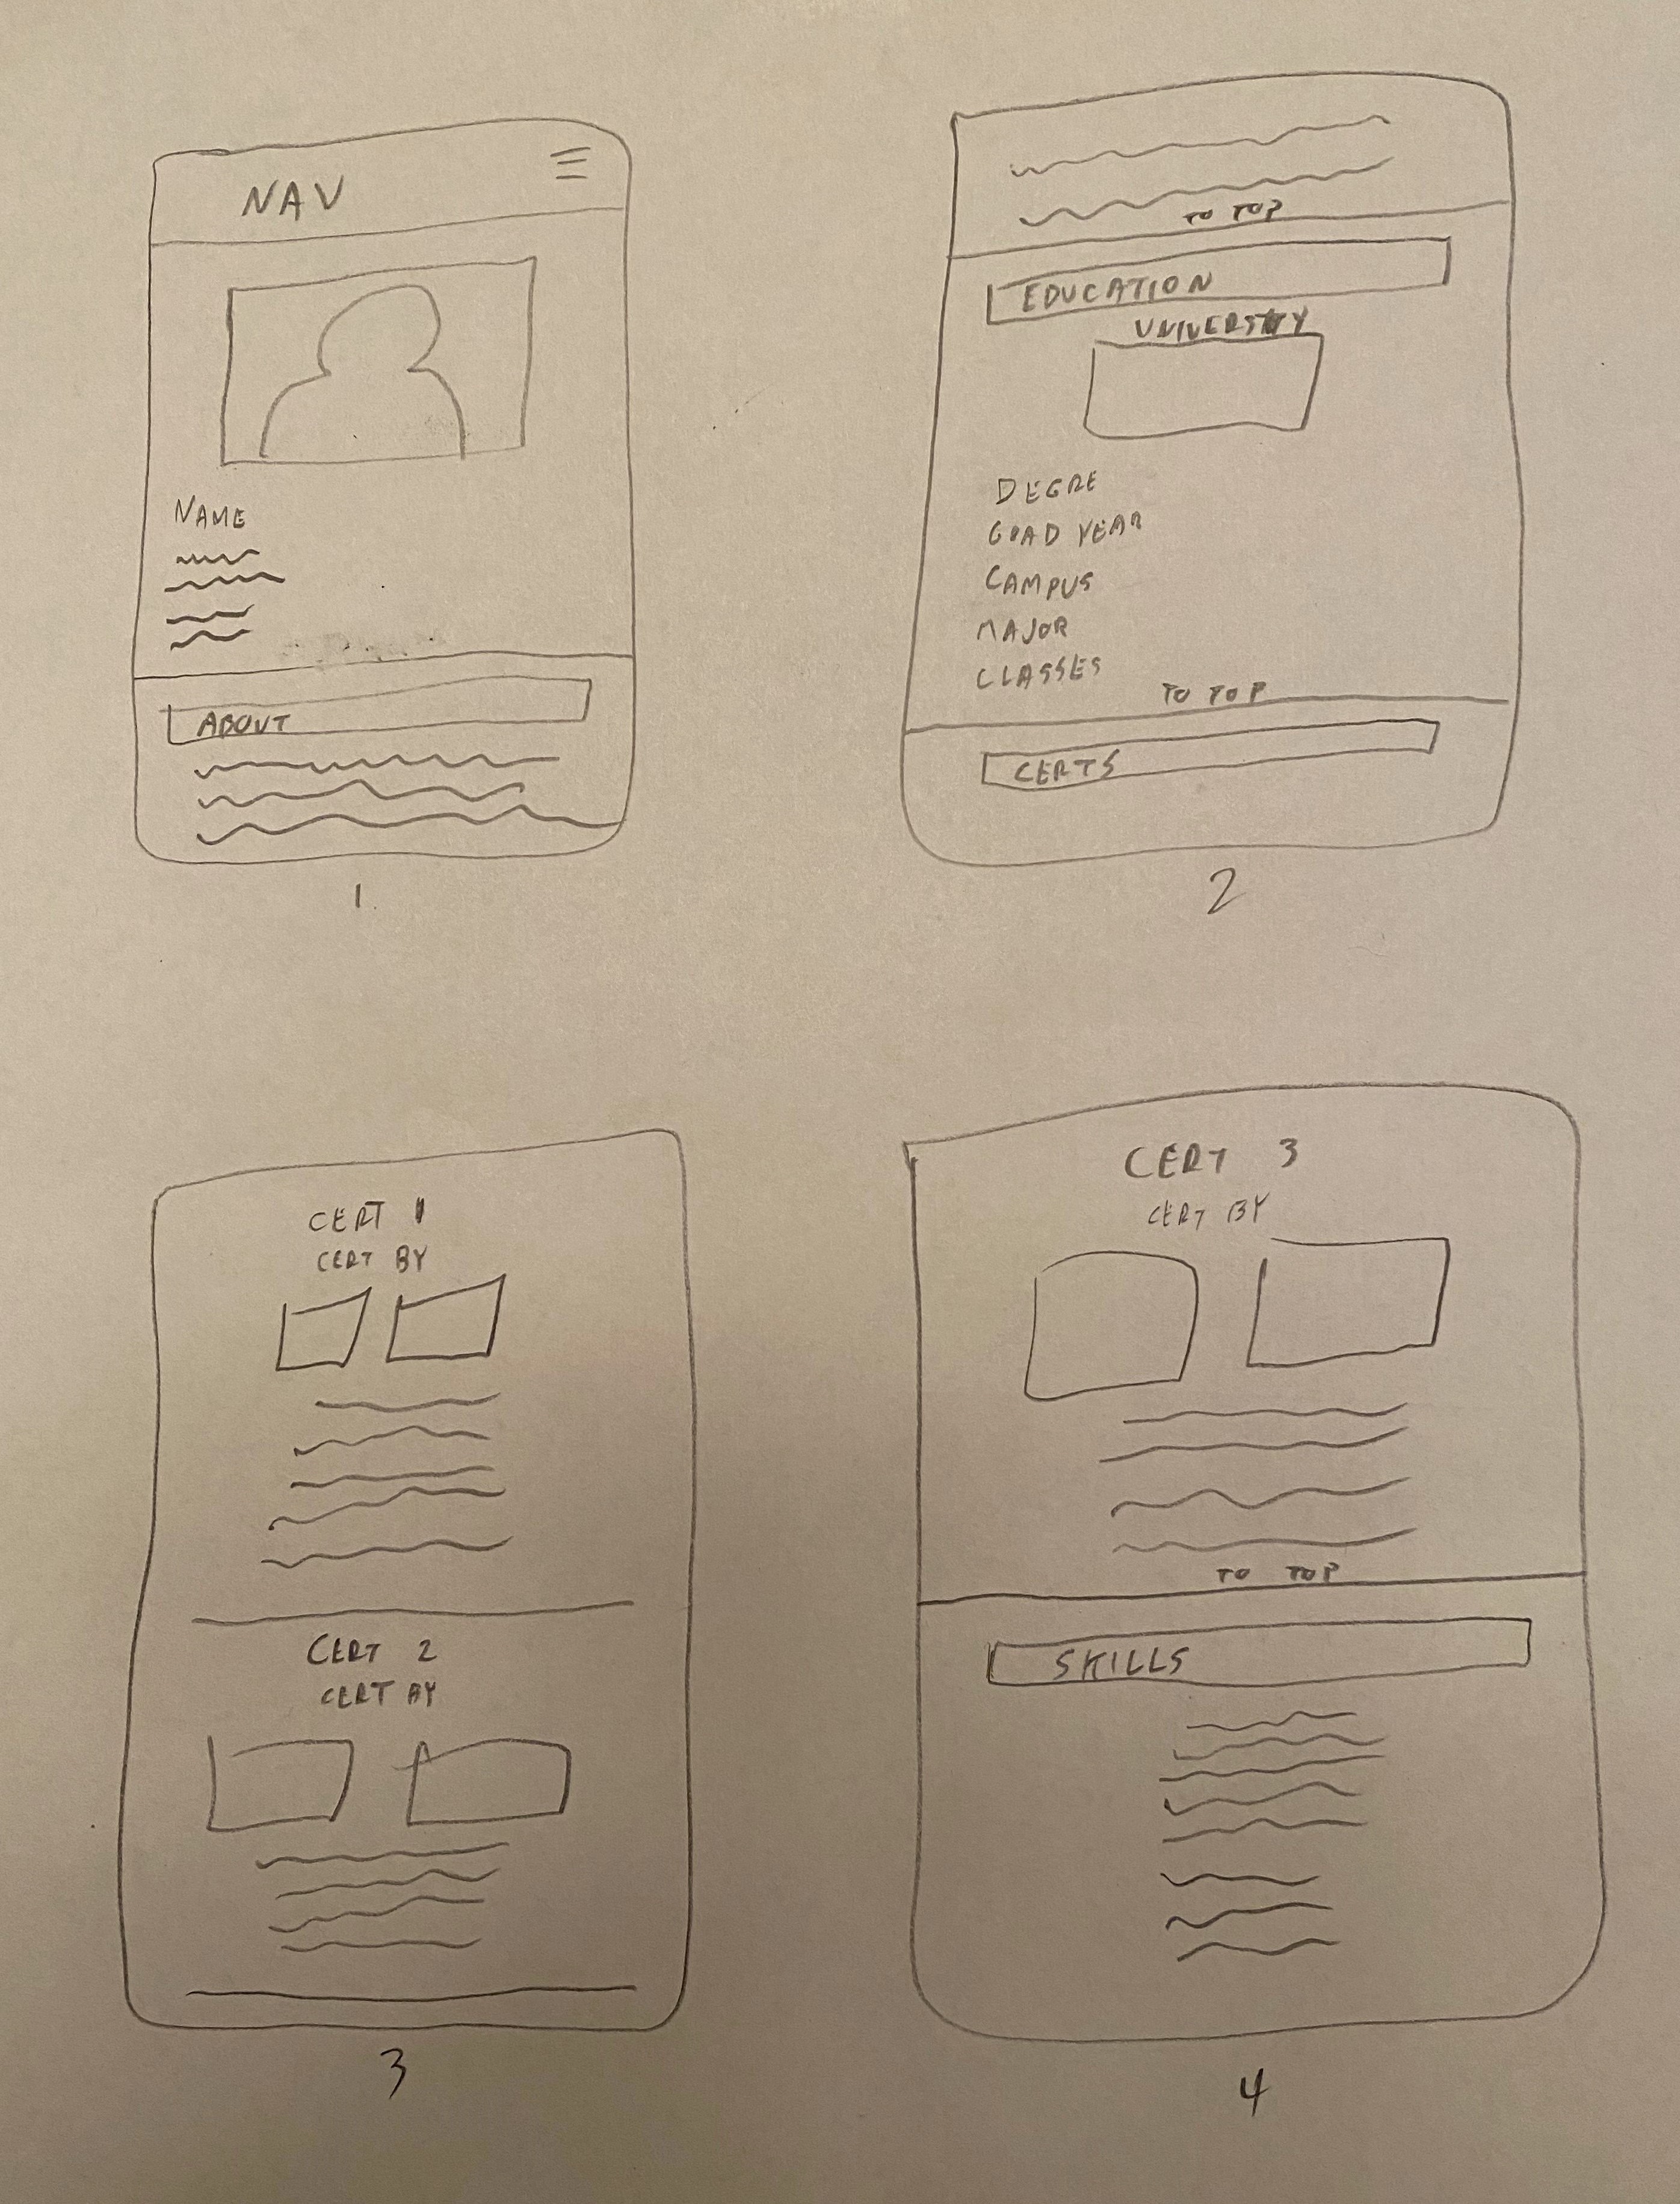 NAV
NAME
ABOUT
1
TO TOP
EDUCATION
UNIVERSITY
DEGRE
GRAD YEAR
CAMPUS
MAJOR
CLASSES
TO TOP
CERTS
2
CERT 1
CERT BY
CERT 2
CERT BY
3
CERT 3
CERT BY
TO TOP
SKILLS
4